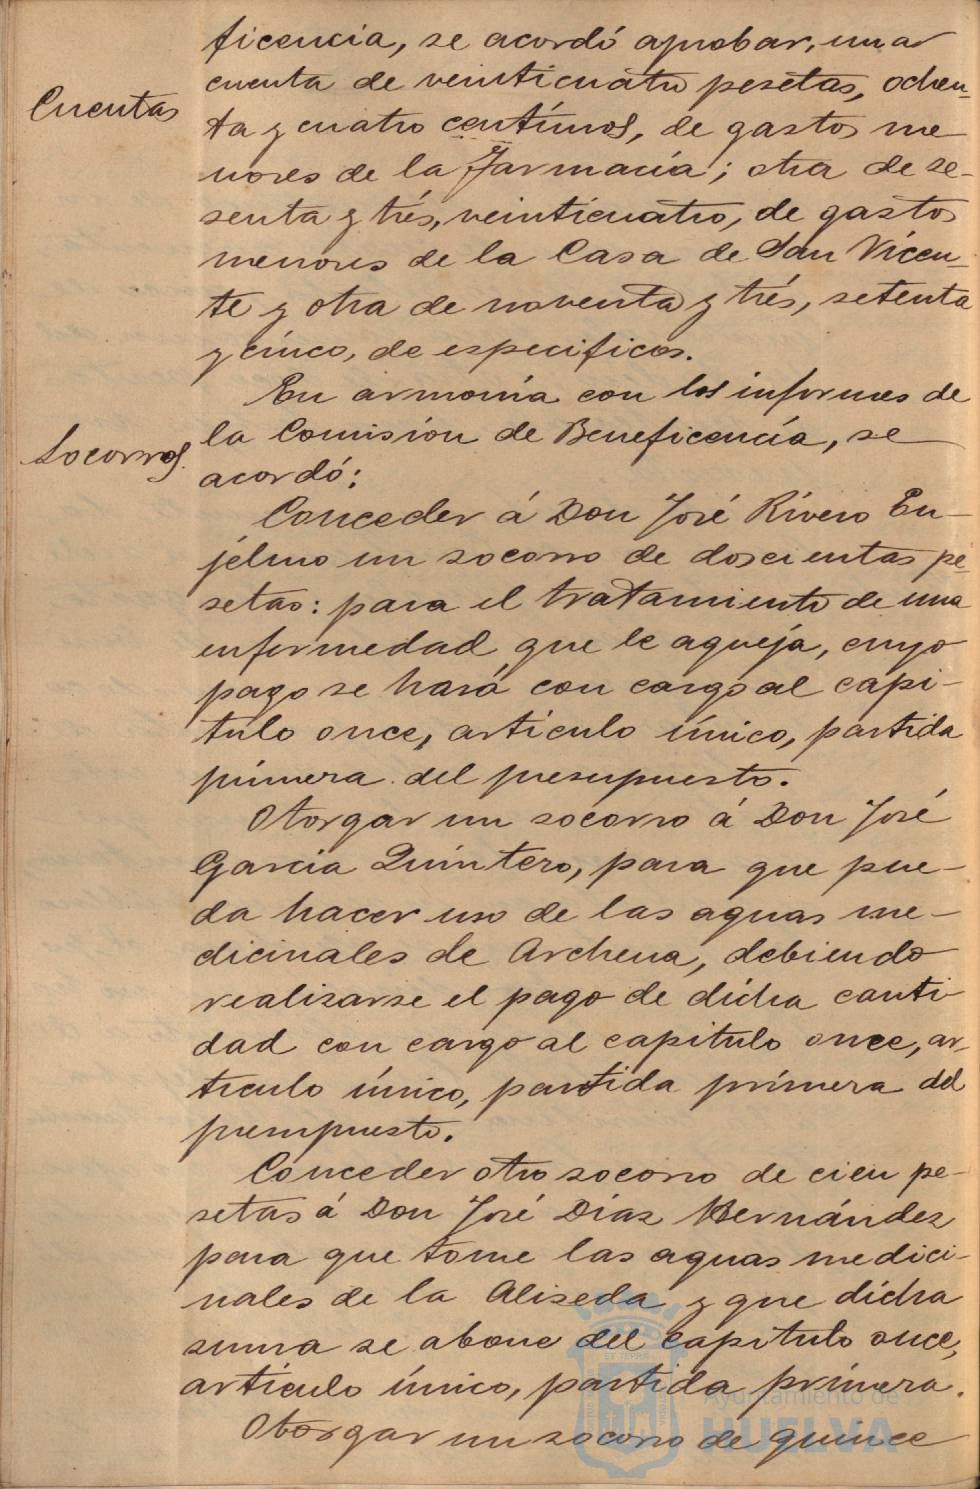 ficencia, se acordó aprobar, una
Cuentas
cuenta de veinticuatro pesetas, ochen-
ta y cuatro centimos, de gastos me
nores de la Farmacia; otra de se-
senta y trés, veinticuatro, de gastos
menores de la Casa de San Vicen-
te y otra de noventa y trés, setenta
y cinco, de especificos.
En armonia con los informes de
Socorros.
la Comisión de Beneficencia, se
acordó:
Conceder á Don José Rivero En-
jelmo un socorro de doscientas pe-
setas: para el tratamiento de una
enfermedad que le aqueja, cuyo
pago se hará con cargo al capi-
tulo once, articulo único, partida
primera del presupuesto.
Otorgar un socorro á Don José
Garcia Quintero, para que pue-
da hacer uso de las aguas me-
dicinales de Archena, debiendo
realizarse el pago de dicha canti-
dad con cargo al capitulo once, ar-
ticulo único, partida primera del
presupuesto.
Conceder otro socorro de cien pe-
setas á Don José Diaz Hernández
para que tome las aguas medici-
nales de la Aliseda y que dicha
suma se abone del capitulo once,
articulo único, partida primera.
Otorgar un socorro de quince
Ayuntamiento de
HUELVA